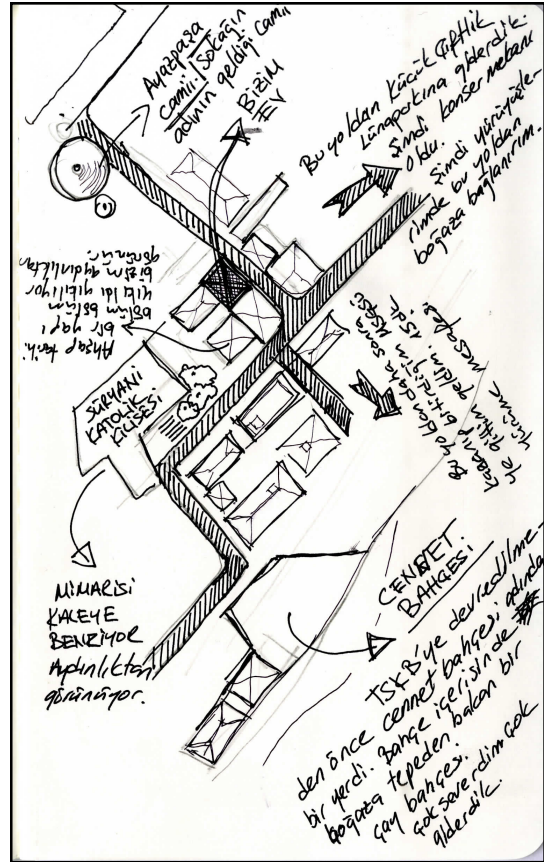 Ayazpaşa
Camii. Sokağın
adının geldiği Camii
BİZİM
EV
Bu yoldan Küçük Çiftlik
Lunaparkına giderdik.
Şimdi konser mekanı
oldu.
Şimdi yürüyüşle-
rimde bu yoldan
boğaza bağlanırım.
Ahşap tarihi
bir yapı
bölüm bölüm
yıkıldı yıkılıyor
bizim aydınlıktan
görünür.
SÜRYANİ
KATOLİK
KİLİSESİ
Bu yoldan daha sonra
bitirdiğim
gittim geldim 15dk
yürüme mesafesi
MİMARİSİ
KALEYE
BENZİYOR
Aydınlıktan
görünüyor.
CENNET
BAHÇESİ
TSKB'ye devredilme-
den önce cennet bahçesi adında
bir yerdi. Bahçe içerisinde
boğaza tepeden bakan bir
çay bahçesi.
Çok severdim çok
giderdik.